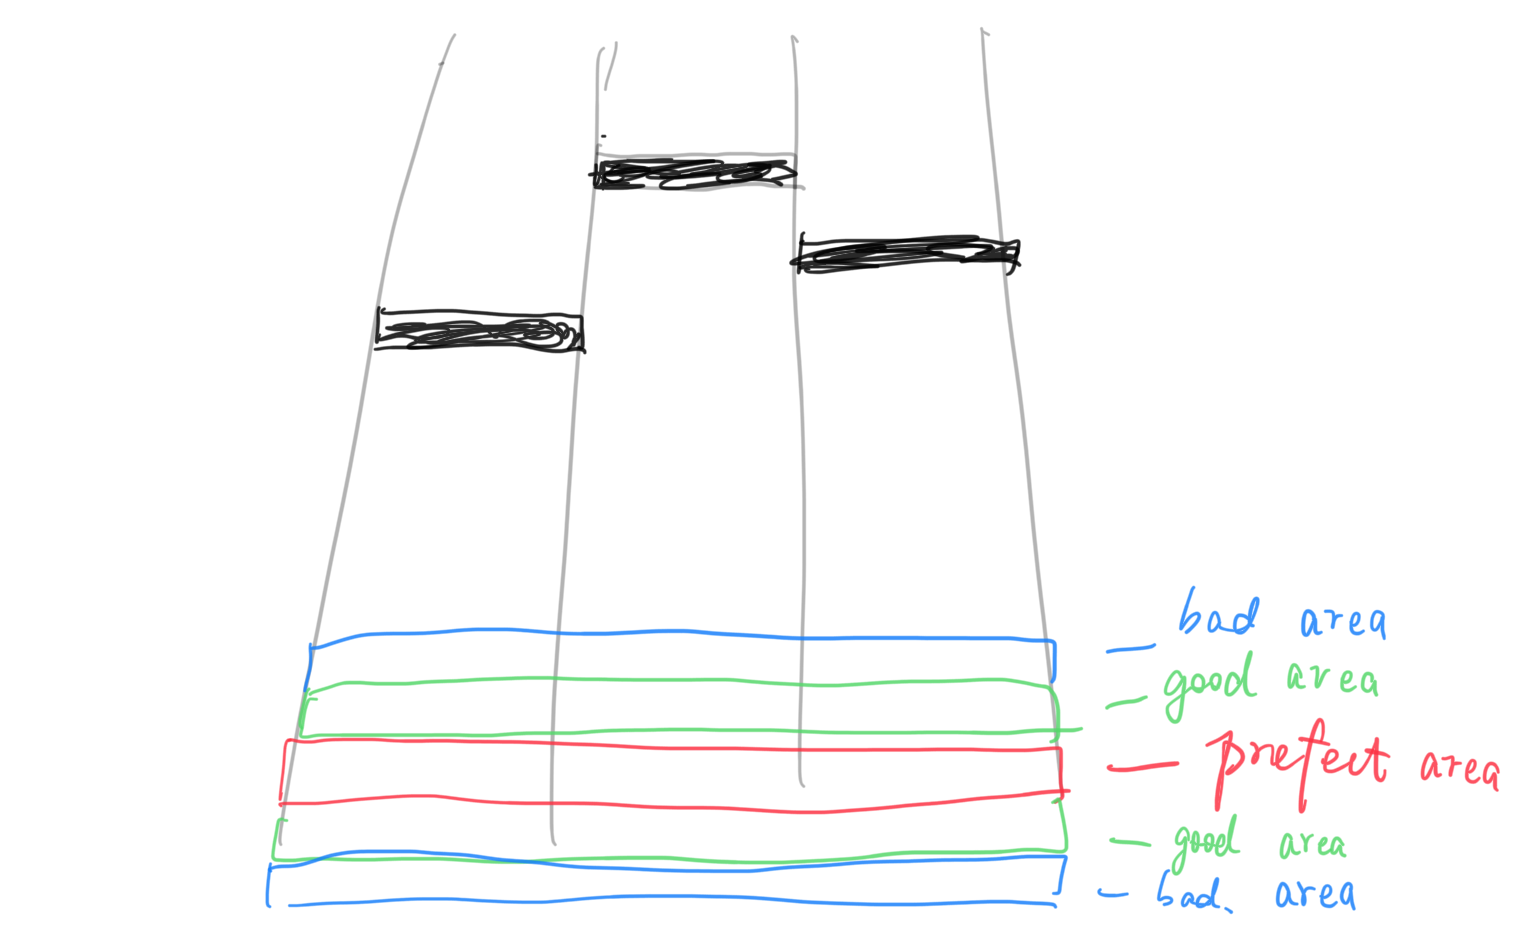 bad area
good area
prefect area
good area
bad. area